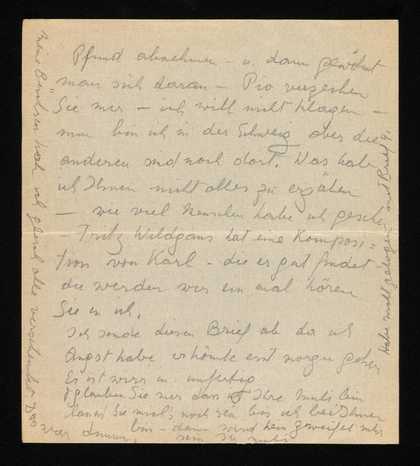 Pfund abnehmen - u. dann gewöhnt
man sich daran - Pio verzeihen
Sie mir - ich will nicht klagen -
nun bin ich in der Schweiz aber die
anderen sind noch dort. Was habe
ich Ihnen nicht alles zu erzälen
- wie viel Menschen habe ich gesehen
- Fritz Wildgans hat eine Komposi=
tion von Karl - die er gut findet -
die werden wir ein mal hören
Sie u. ich.
Ich sende diesen Brief ab da ich
Angst habe er könnte erst morgen gehen
Es ist wirr u. unfertig
Glauben Sie mir dass ich Ihre
kann Sie noch bis ich bei Ihnen
bin - dann wird kein zweifel mehr
sein
war dumm,
habe ich gleich alles verschenkt das
Habe nicht